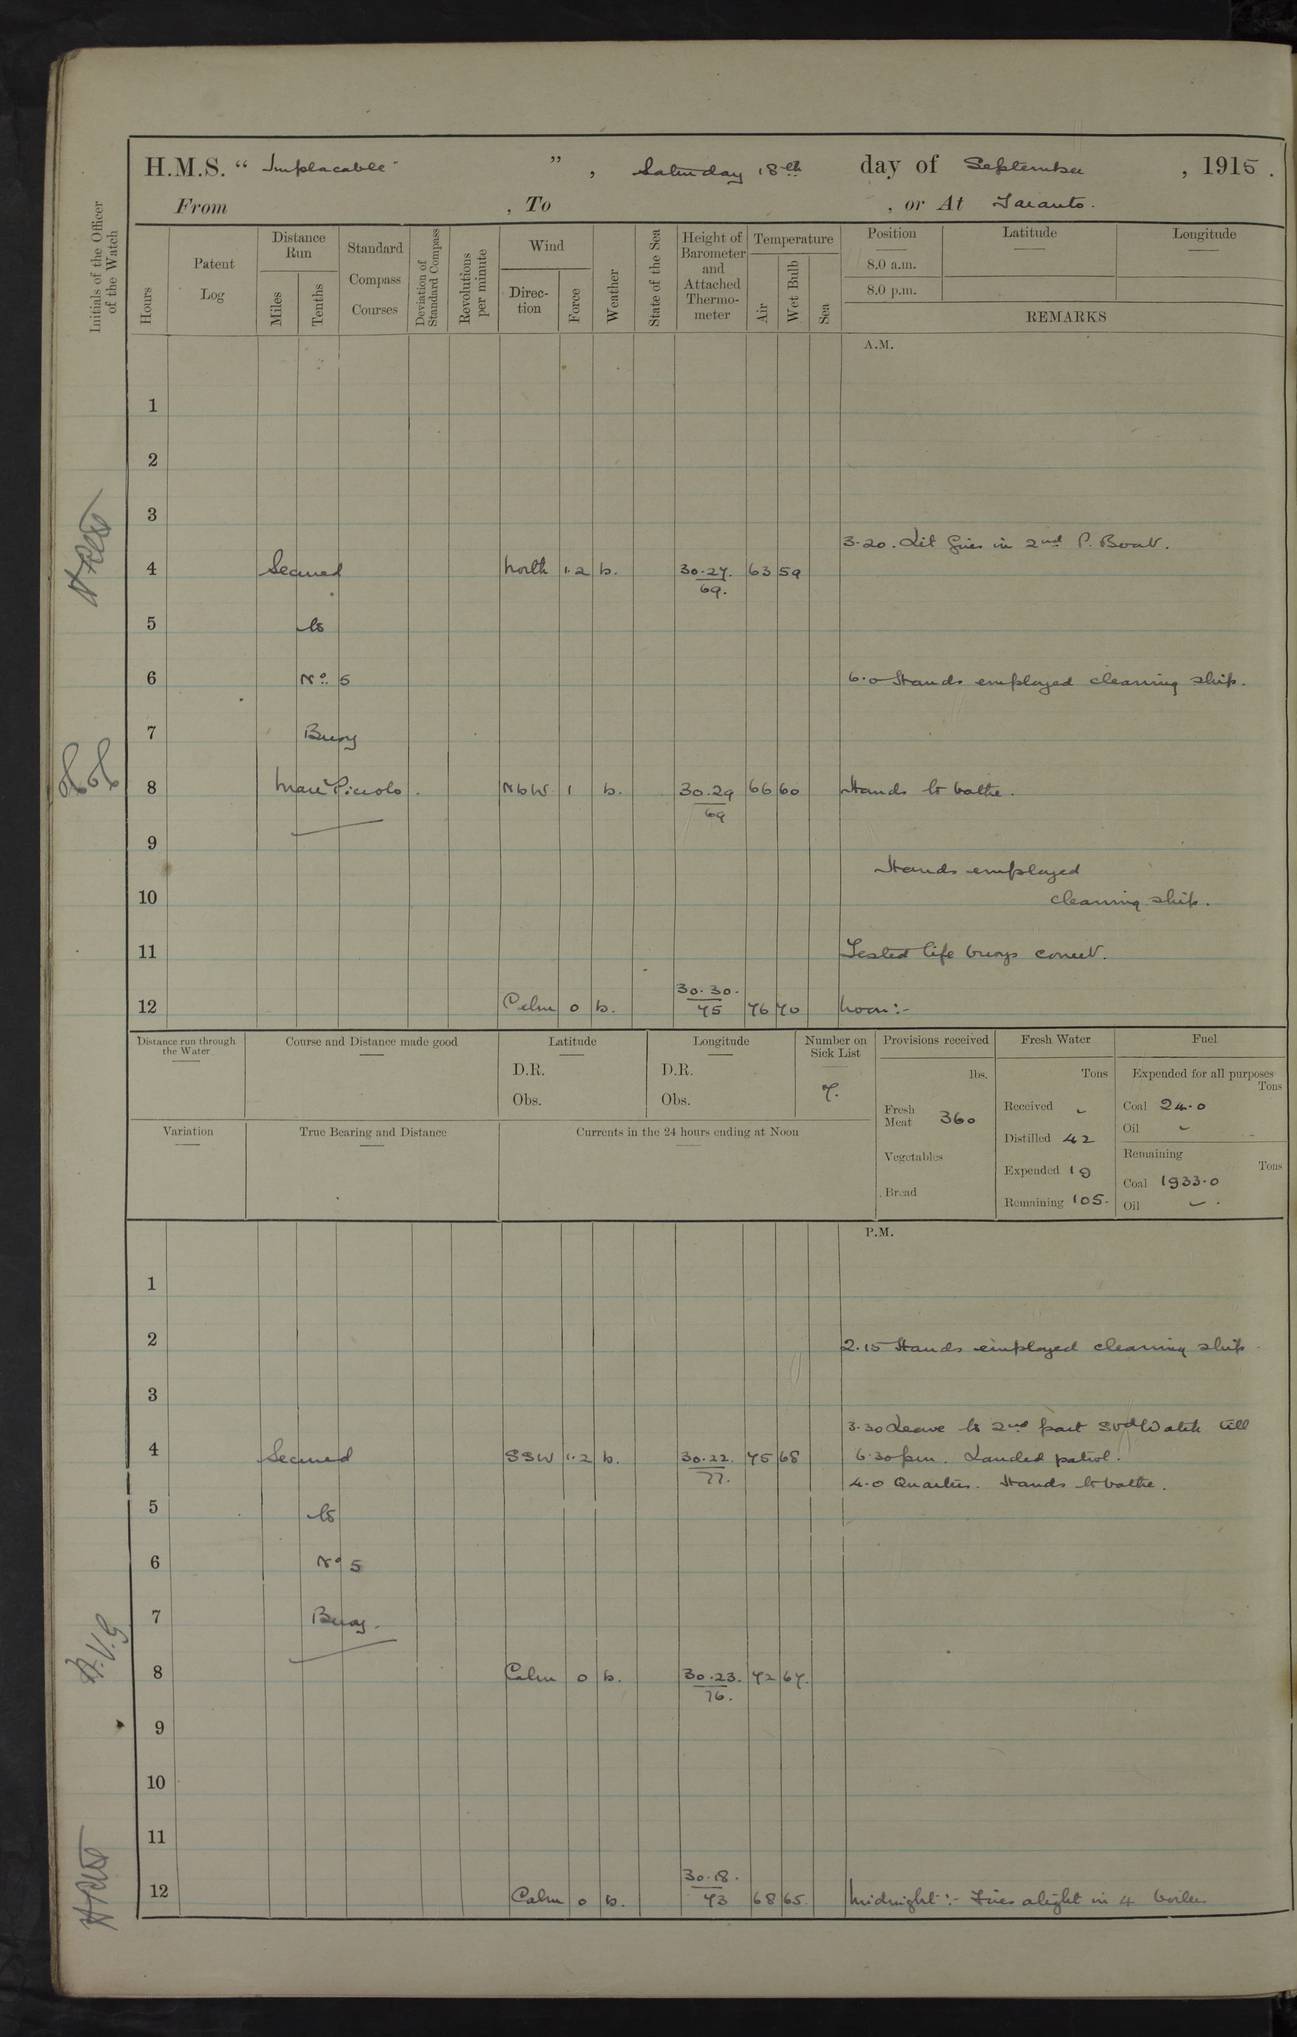 H.M.S. “ Implacable ” , Saturday 18th day of September , 1915 .
From , To , or At Taranto.
Initials of the Officer of the Watch
Hours
Patent Log
Distance Run
Miles
Tenths
Standard Compass Courses
Deviation of Standard Compass
Revolutions per minute
Wind
Direction
Force
Weather
State of the Sea
Height of Barometer and Attached Thermometer
Temperature
Air
Wet Bulb
Sea
Position
8.0 a.m.
8.0 p.m.
Latitude
Longitude
REMARKS
A.M.
1
2
3
3.20. Lit fires in 2nd P. Boat.
4 Secured North 1.2 b. 30.27. 63 59
69.
5 to
6 No. 5 6.0 Hands employed cleaning ship.
7 Buoy
8 Mare Piccolo. NbW 1 b. 30.29 66 60 Hands to bathe.
69
9
Hands employed
10 cleaning ship.
11 Tested life buoys correct.
12 Calm 0 b. 30.30. 76 70 Noon:-
75
Distance run through the Water
Course and Distance made good
Latitude
D.R.
Obs.
Longitude
D.R.
Obs.
Number on Sick List
7.
Provisions received
lbs.
Fresh Meat 360
Vegetables
Bread
Fresh Water
Tons
Received -
Distilled 42
Expended 19
Remaining 105.
Fuel
Expended for all purposes
Tons
Coal 24.0
Oil -
Remaining
Tons
Coal 1933.0
Oil -
Variation
True Bearing and Distance
Currents in the 24 hours ending at Noon
P.M.
1
2 2.15 Hands employed cleaning ship.
3
3.30 Leave to 2nd part Stbd Watch till
4 Secured SSW 1.2 b. 30.22. 75 68 6.30 pm. Landed patrol.
77. 4.0 Quarters. Hands to bathe.
5 to
6 No 5
7 Buoy.
A.V.G
8 Calm 0 b. 30.23. 72 67.
76.
9
10
11
12 Calm 0 b. 30.18. 68 65. Midnight:- Fires alight in 4 boilers
73